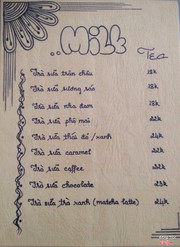 ..Milk
Tea
Trà sữa trân châu 18k
Trà sữa sương sáo 18k
Trà sữa nha đam 18k
Trà sữa phô mai 22k
Trà sữa thái đỏ/xanh 24k
Trà sữa caramel 22k
Trà sữa coffee 22k
Trà sữa chocolate 23k
Trà sữa trà xanh (matcha latte) 24k